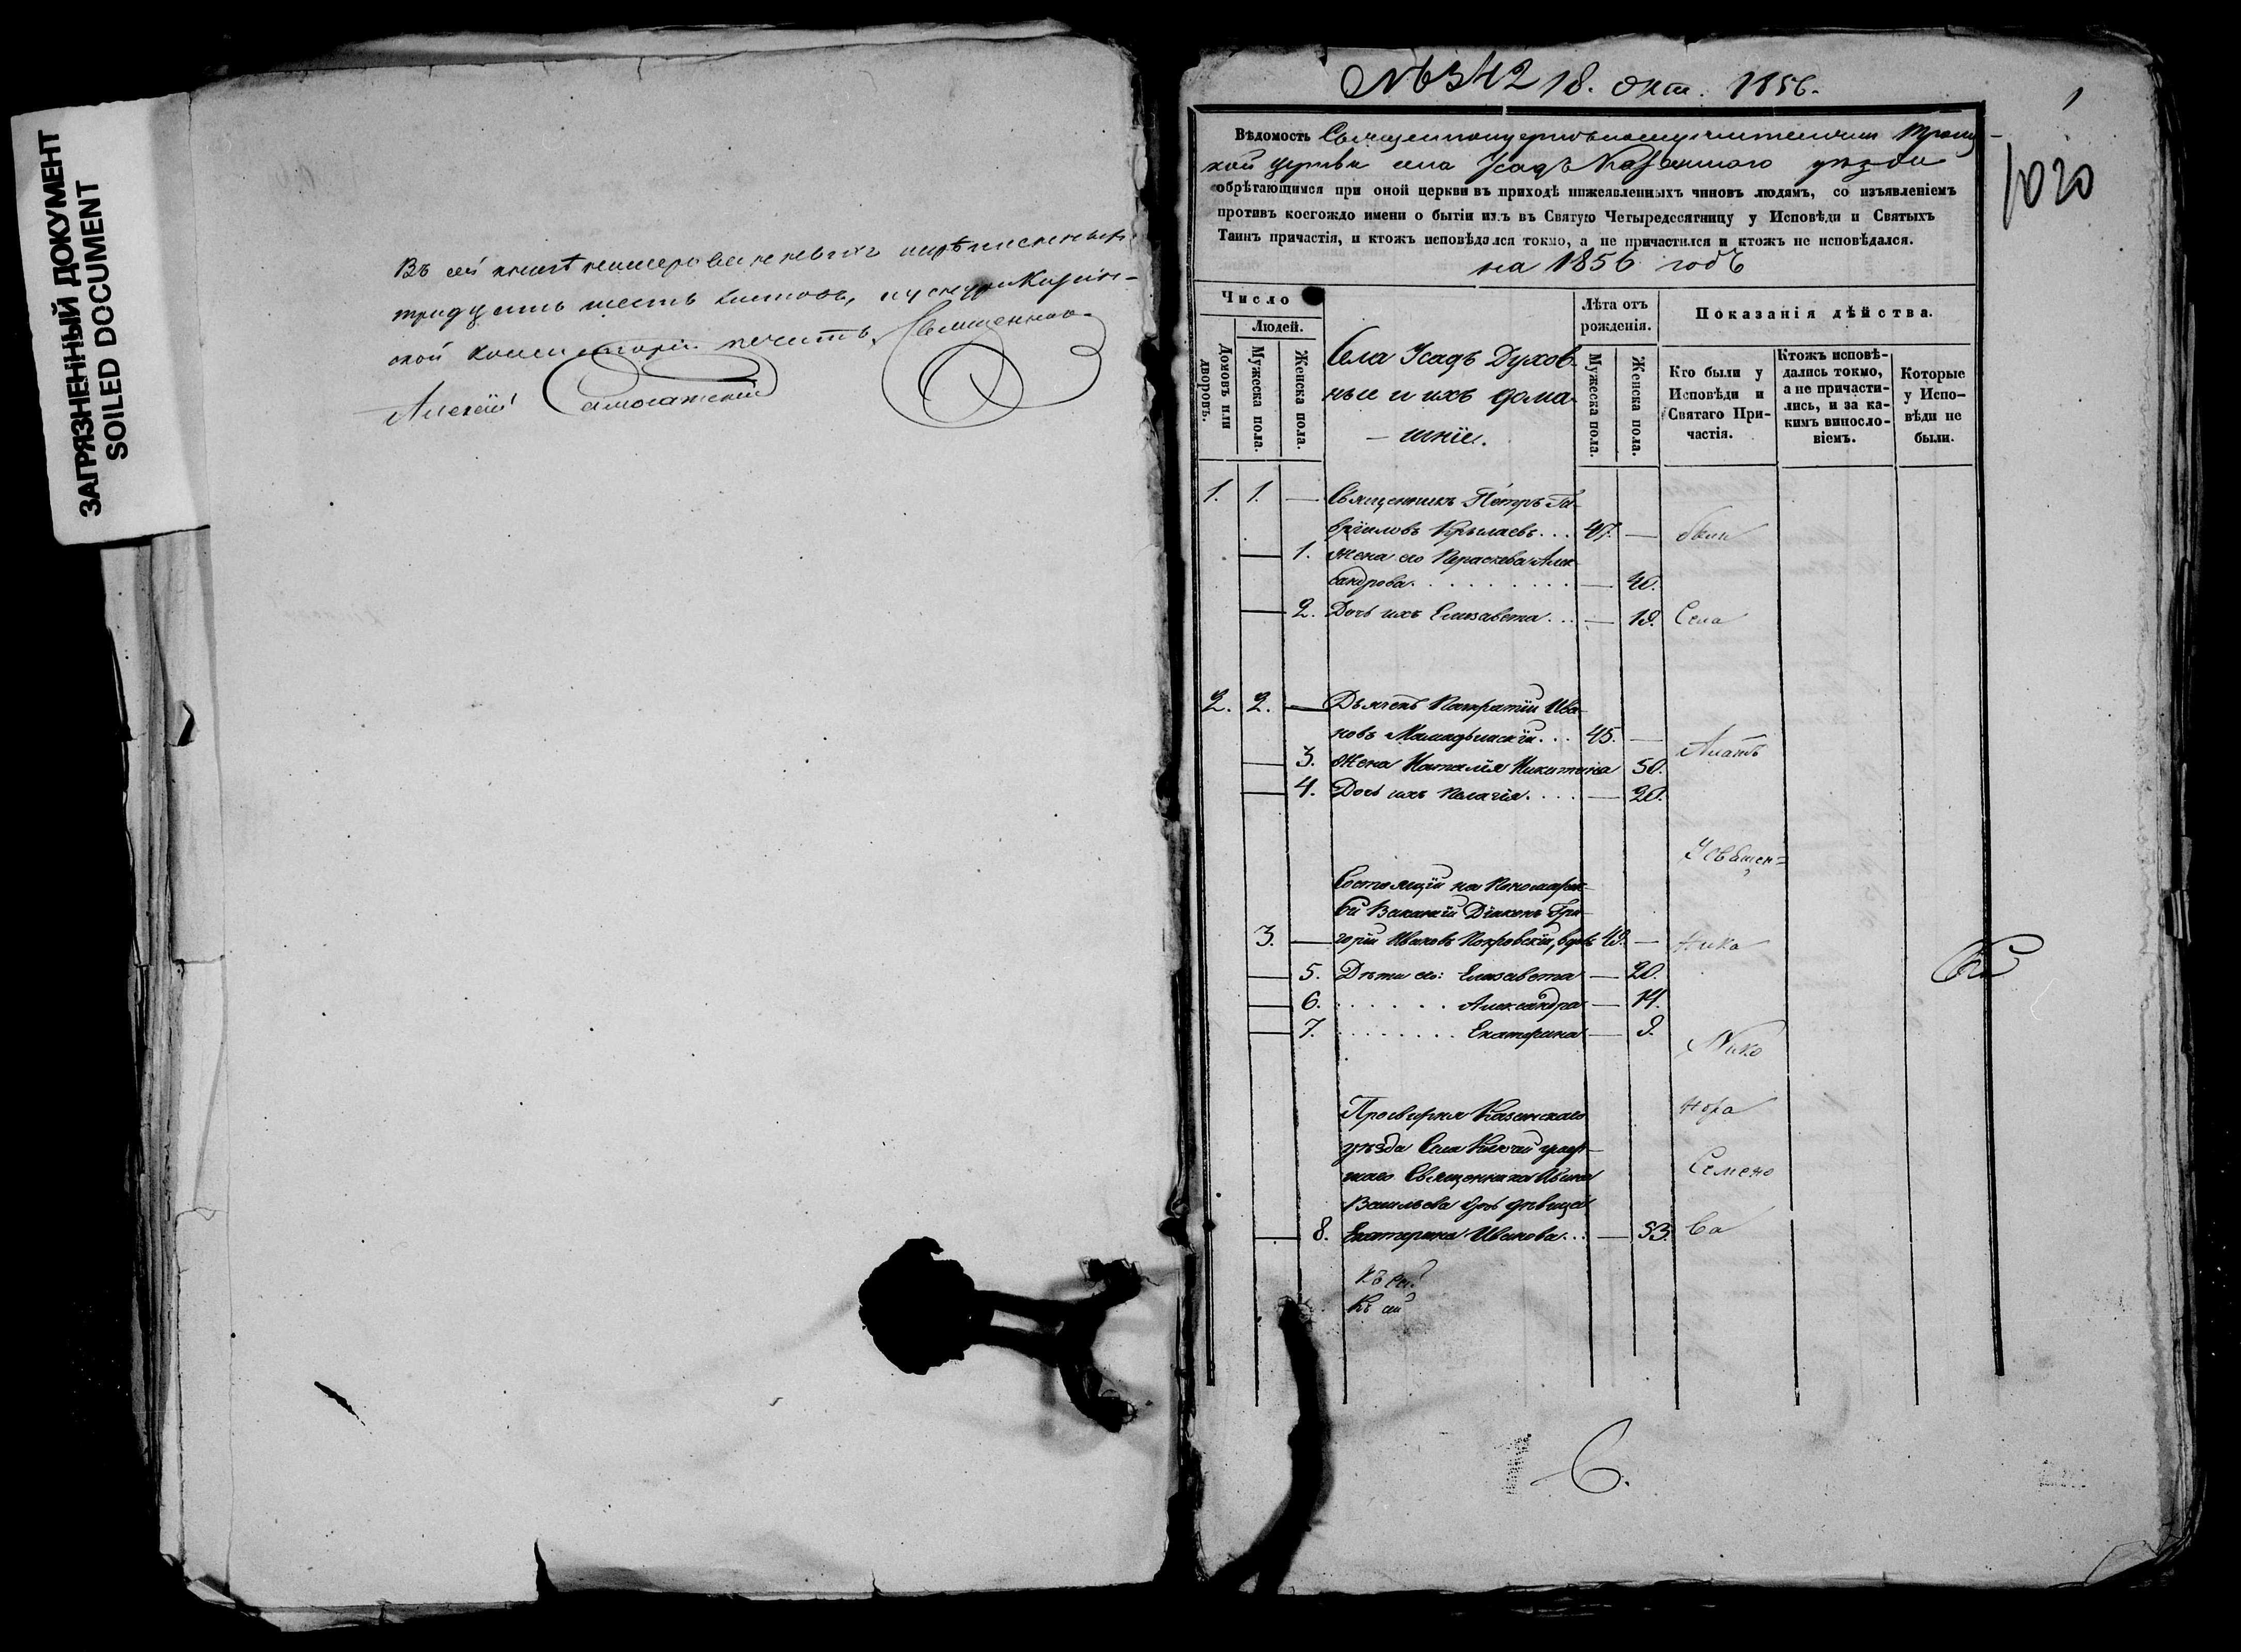 ЗАГРЯЗНЕННЫЙ ДОКУМЕНТ
SOILED DOCUMENT
Въ сей книгѣ
тридцать шесть листовъ,
ской печать, Священник
Алексѣй
№ 342 18. Окт. 1856.
1
1020
Вѣдомость Троиц-
кой церкви села Усадъ Казанскаго уѣзда
обрѣтающимся при оной церкви въ приходѣ нижеявленныхъ чиновъ людямъ, со изъявленіемъ
противъ коегождо имени о бытіи ихъ въ Святую Четыредесятницу у Исповѣди и Святыхъ
Таинъ причастія, и ктожъ исповѣдался токмо, а не причастился и ктожъ не исповѣдался.
на 1856 годъ
Число
Людей.
Домовъ или дворовъ.
Мужеска пола.
Женска пола.
Села Усадъ Духов-
ные и ихъ дома-
шніе.
Лѣта отъ рожденія.
Мужеска пола.
Женска пола.
Показанія дѣйства.
Кто были у Исповѣди и Святаго При-частія.
Ктожъ исповѣ-дались токмо, а не причасти-лись, и за ка-кимъ винословіемъ.
Которые у Испо-вѣди не были.
1. 1. — Священникъ Петръ Га-
вріиловъ Крылаевъ... 47. —
— 1. Жена его Параскева Алек-
сандрова. — 40.
— 2. Дочь ихъ Елизавета... — 19. Села
2. 2. — Дьячекъ Панкратій Ива-
новъ Мамадышскій... 45. —
— 3. Жена Наталія Никитина 50.
— 4. Дочь ихъ Пелагія.... — 20.
Священ=
Состоящій на Пономарс-
кой Ваканціи Діаконъ Гри-
3. — горій Ивановъ Покровскій, вдовъ 49. — ника
— 5. Дѣти его: Елизавета — 20.
— 6. Александра — 14.
— 7. Екатерина — 9.
Нико
Просвирня Казанскаго
нора
уѣзда Села Ключей умер-
шаго Священника Ивана
Семено
Васильева дочь дѣвица
— 8. Екатерина Иванова... — 53. ва
Къ сей
Къ сей
1 6.